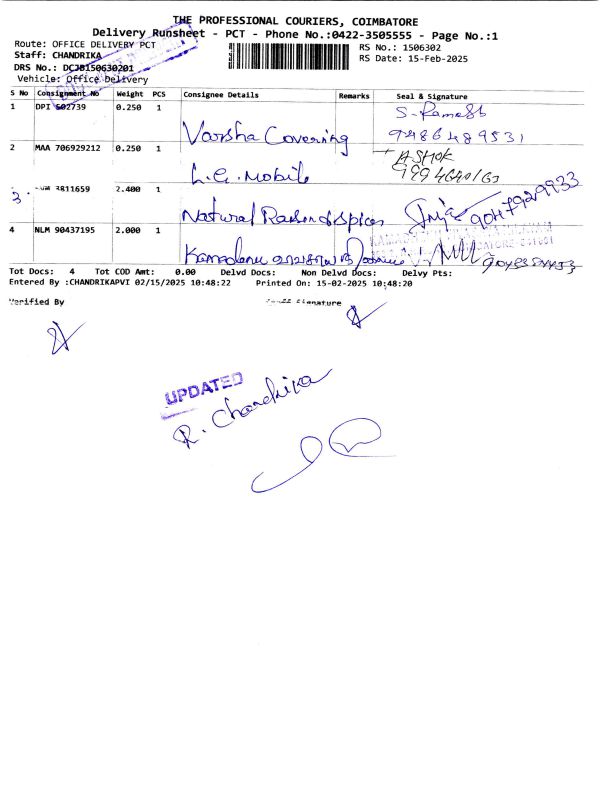 THE PROFESSIONAL COURIERS, COIMBATORE
Delivery Runsheet - PCT - Phone No.:0422-3505555 - Page No.:1
Route: OFFICE DELIVERY PCT
RS No.: 1506302
Staff: CHANDRIKA
RS Date: 15-Feb-2025
DRS No.: DCJB150630201
Vehicle: Office Delivery
S No Consignment No Weight PCS Consignee Details Remarks Seal & Signature
1 DPI 502739 0.250 1 Varsha Covering
9486489531
2 MAA 706929212 0.250 1 L.G. Mobile ASHOK
3 3811659 2.400 1 Natural
9047929933
4 NLM 90437195 2.000 1
Tot Docs: 4 Tot COD Amt: 0.00 Delvd Docs: Non Delvd Docs: Delvy Pts:
Entered By :CHANDRIKAPVI 02/15/2025 10:48:22 Printed On: 15-02-2025 10:48:20
Verified By
Signature
UPDATED
R. Chandrika